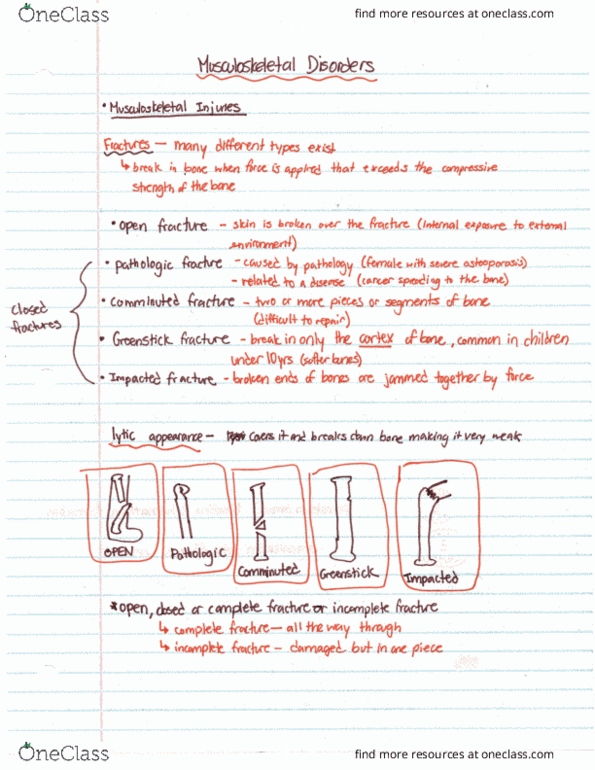 OneClass
find more resources at oneclass.com
Musculoskeletal Disorders
• Musculoskeletal Injuries
Fractures - many different types exist
↳ break in bone when force is applied that exceeds the compressive
strength of the bone
• open fracture - skin is broken over the fracture (internal exposure to external
environment)
• pathologic fracture - caused by pathology (female with severe osteoporosis)
- related to a disease (cancer spending to the bone)
closed
fractures
• comminuted fracture - two or more pieces or segments of bone
(difficult to repair)
• Greenstick fracture - break in only the cortex of bone, common in children
under 10yrs (softer bones)
• Impacted fracture - broken ends of bones are jammed together by force
lytic appearance - it and breaks down bone making it very weak
OPEN
Pathologic
Comminuted
Greenstick
Impacted
*open, closed or complete fracture or incomplete fracture
↳ complete fracture - all the way through
↳ incomplete fracture - damaged but in one piece
OneClass
find more resources at oneclass.com